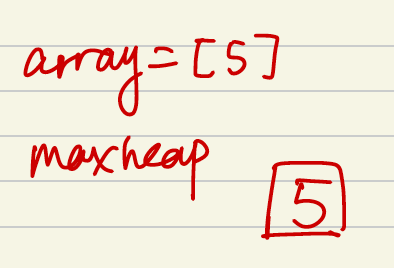 array = [5]
maxheap
5